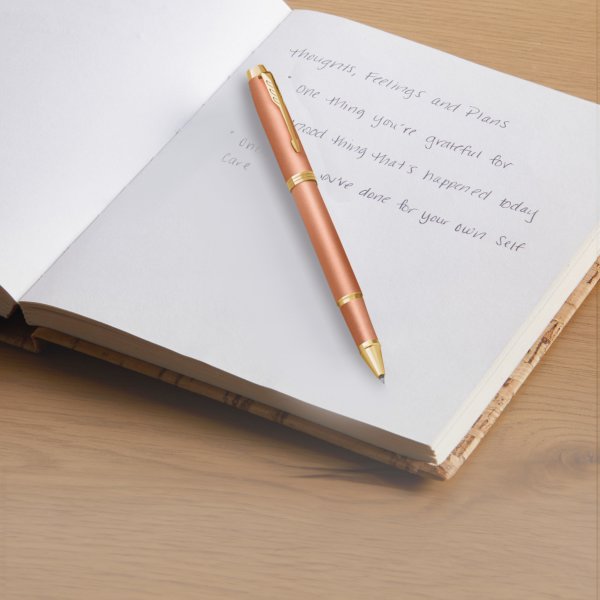 thoughts, Feelings and Plans
• one thing you're grateful for
good thing that's happened today
• one you've done for your own Self
Care